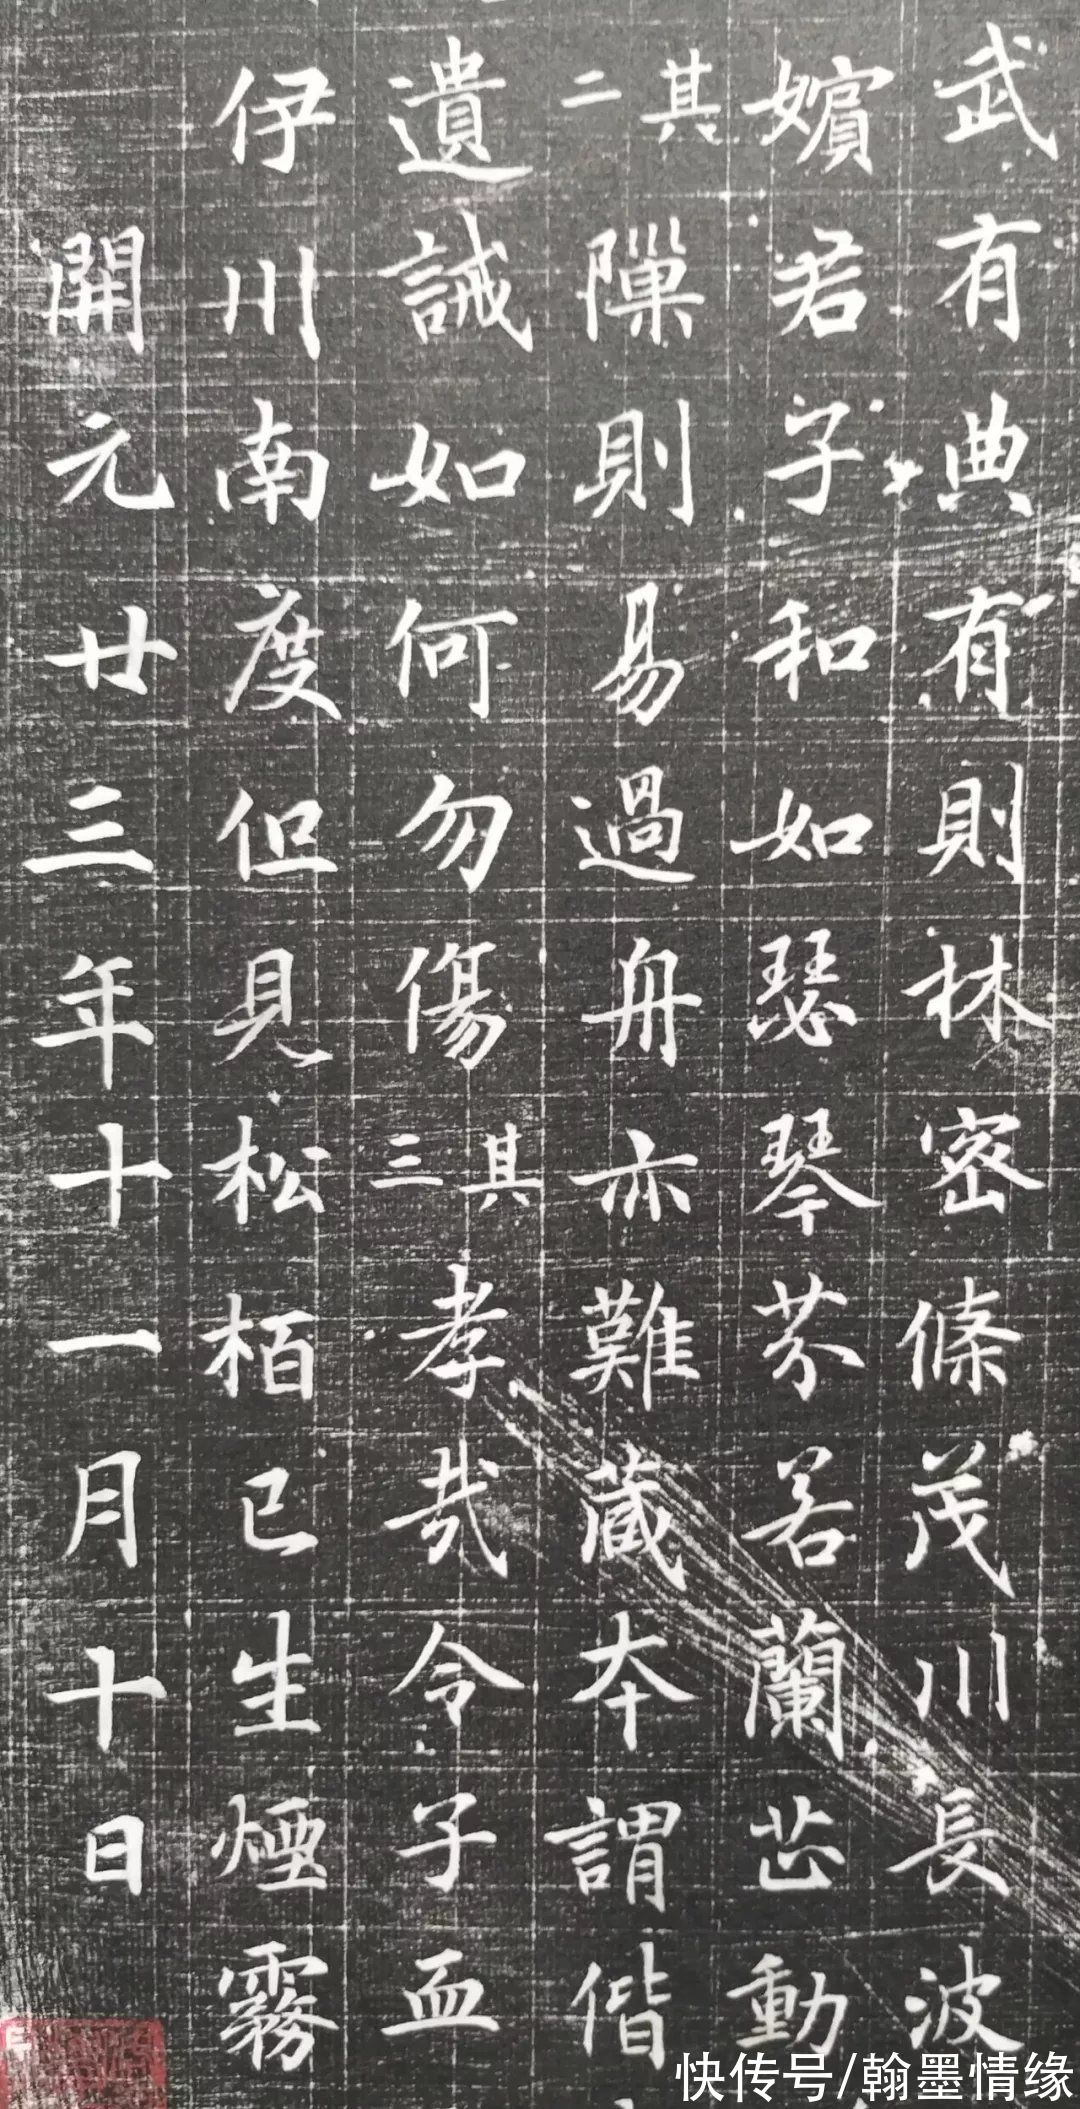 武有典有則林密條茂川長波
嬪君子和如瑟琴芬若蘭芷動
其二隟則易過舟亦難藏本謂偕
遺誡如何勿傷其三孝哉令子血
伊川南度但見松栢已生煙霧
開元廿三年十一月十日
快传号/翰墨情缘